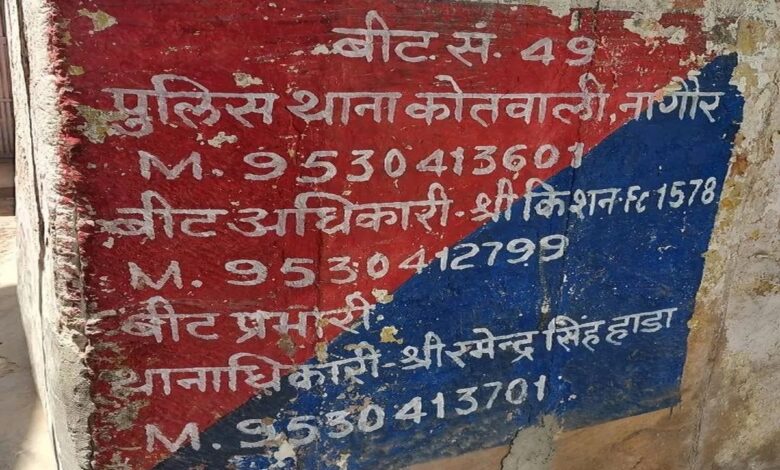 बीट सं. 49
पुलिस थाना कोतवाली, नागौर
M. 9530413601
बीट अधिकारी-श्री किशन Fc 1578
M. 9530412799
बीट प्रभारी
थानाधिकारी-श्री रमेन्द्र सिंह हाडा
M. 9530413701